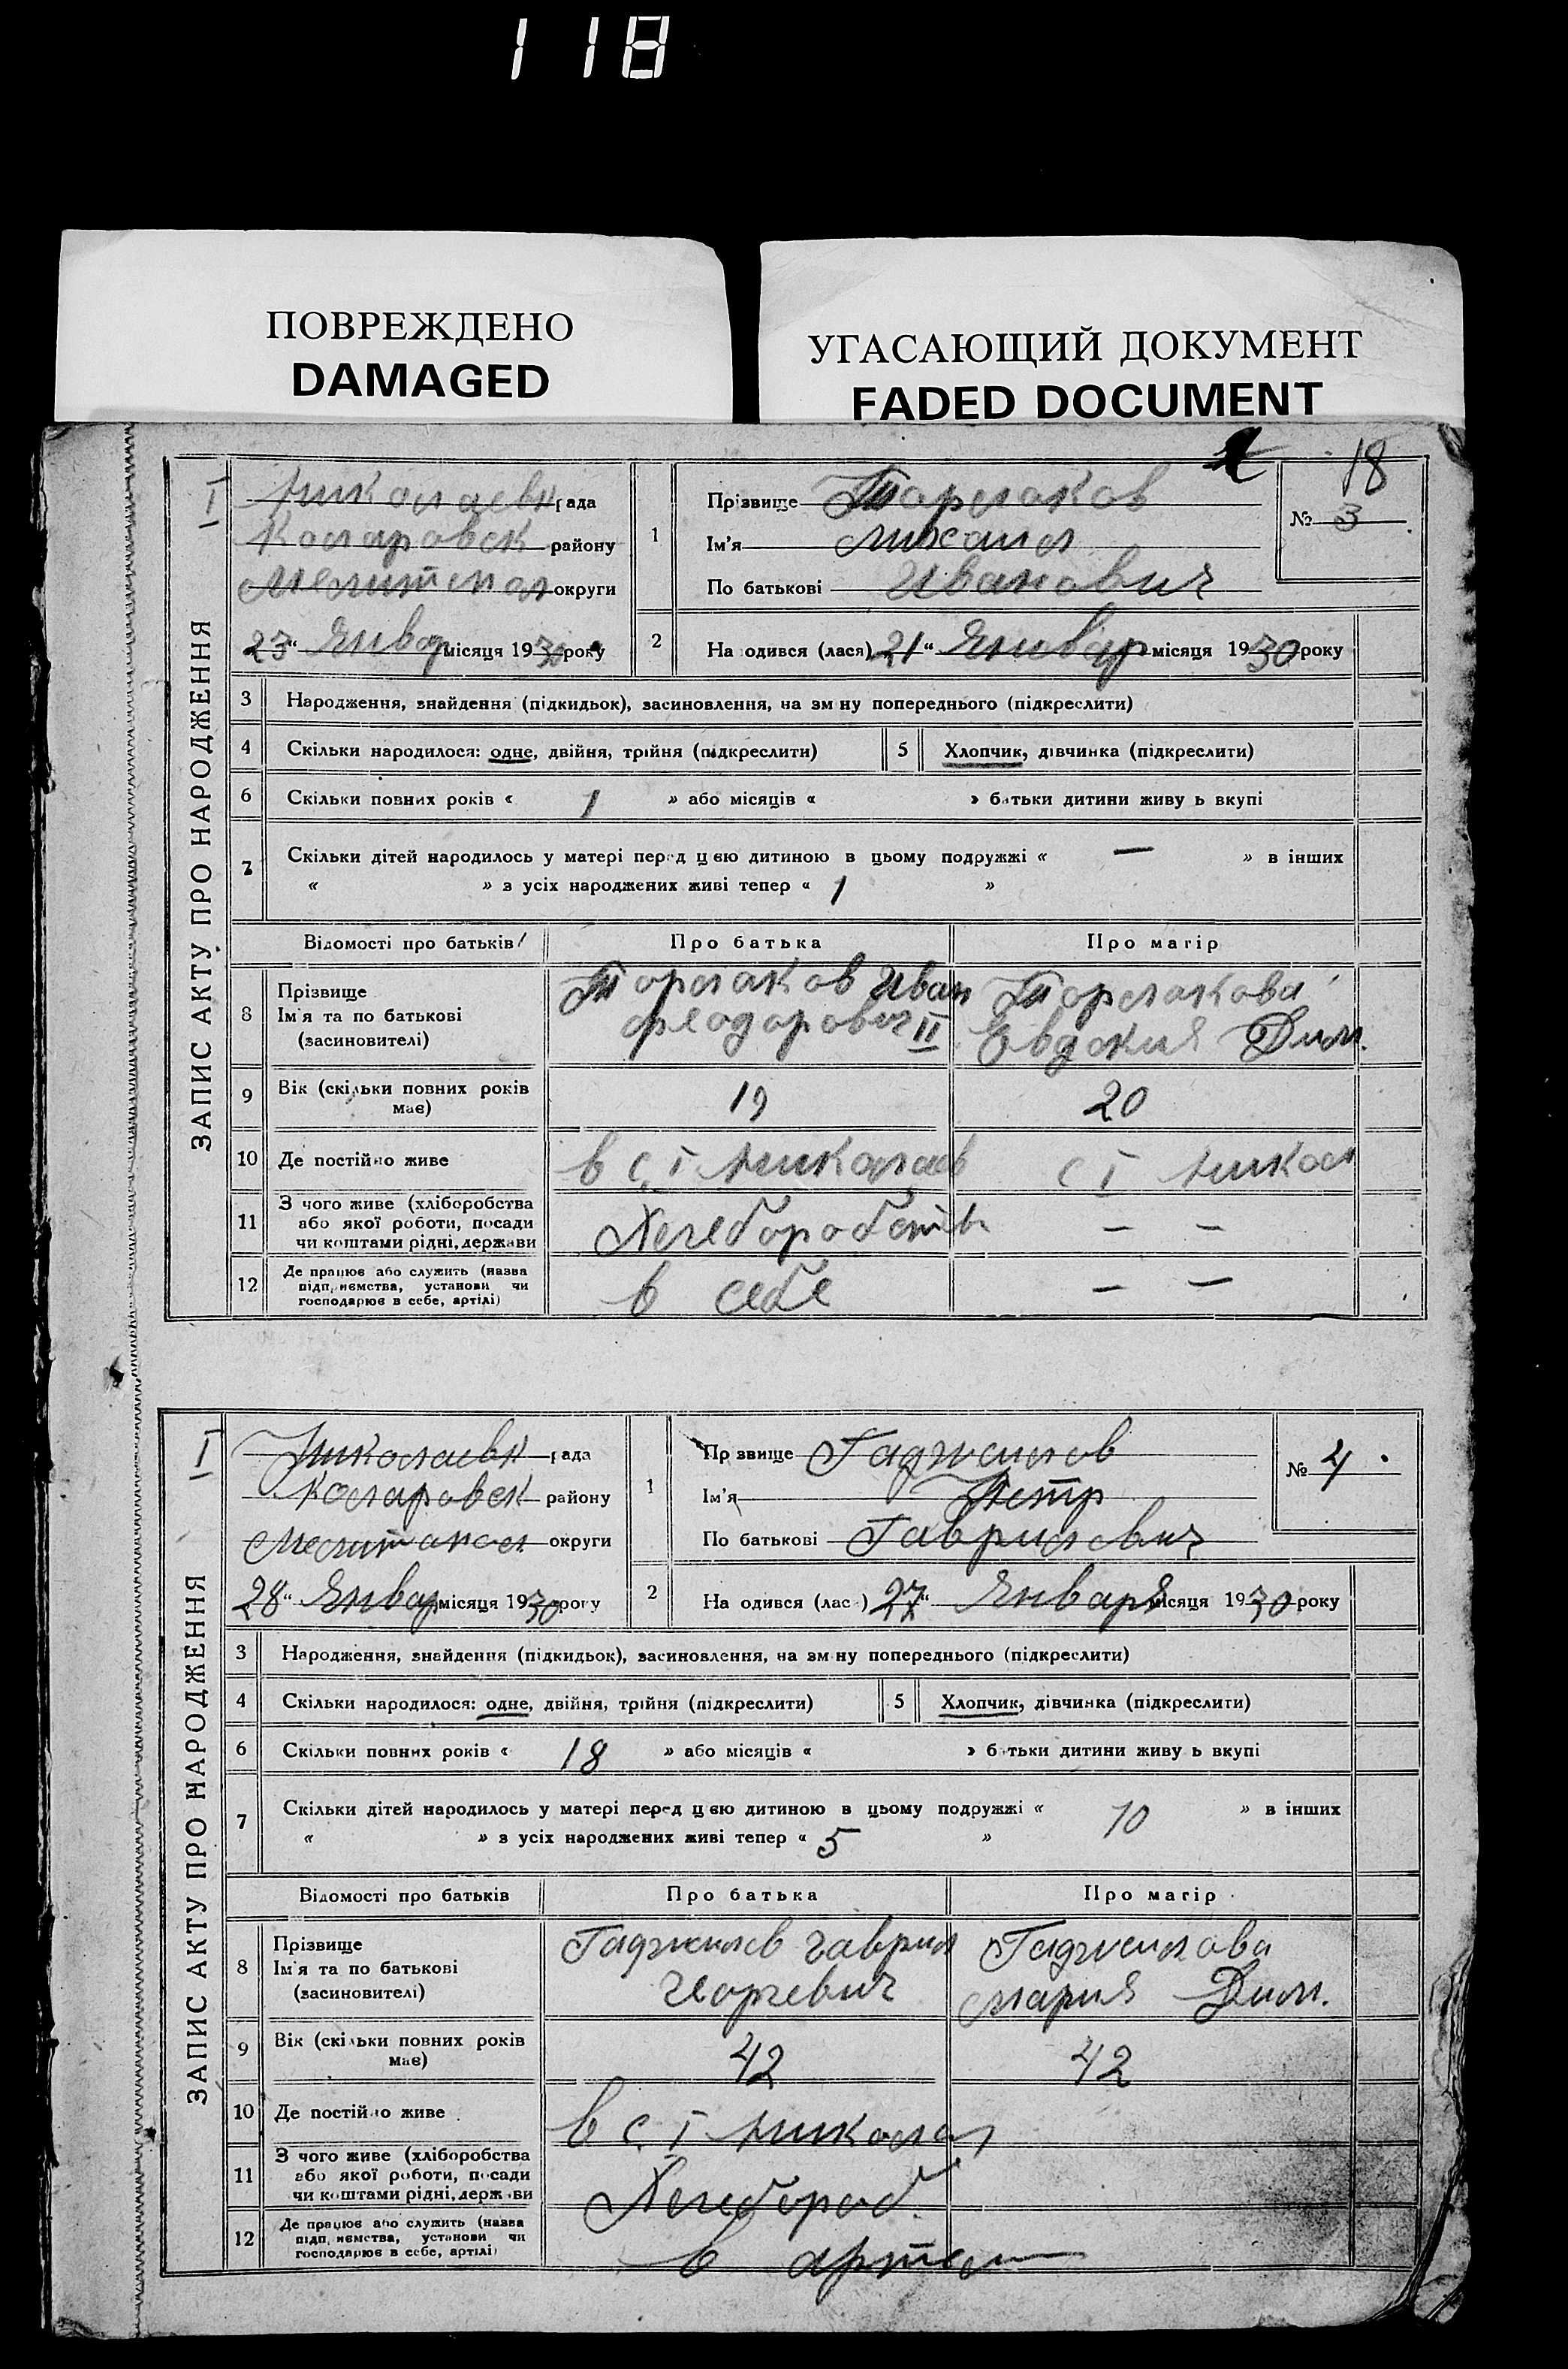 118
ПОВРЕЖДЕНО
DAMAGED
УГАСАЮЩИЙ ДОКУМЕНТ
FADED DOCUMENT
18
ЗАПИС АКТУ ПРО НАРОДЖЕННЯ
I Николаевк рада
Коларовск району
Мелитопол округи
23 “ Январ місяця 1930 року
1 Прізвище Торлаков
Ім'я Михаил
По батькові Иванович
№ 3
2 На одився (лася) 21 “ Январ місяця 1930 року
3 Народження, знайдення (підкидьок), засиновлення, на зм ну попереднього (підкреслити)
4 Скільки народилося: одне, двійня, трійня (підкреслити) 5 Хлопчик, дівчинка (підкреслити)
6 Скільки повних років « 1 » або місяців « » батьки дитини живу ь вкупі
7 Скільки дітей народилось у матері перед цією дитиною в цьому подружжі « — » в інших
« » з усіх народжених живі тепер « 1 »
Відомості про батьків Про батька Про матір
8 Прізвище
Ім'я та по батькові
(засновителі)
Торлаков Иван
Феодорович II
Торлакова
Евдокия Дим.
9 Вік (скільки повних років
має) 19 20
10 Де постійно живе в с. I Николаев с I Никол
11 З чого живе (хліборобства
або якої роботи, посади
чи коштами рідні, держави
Хлеборобств — —
12 Де працює або служить (назва
підп, иємства, установи чи
господарює в себе, артілі)
в себе — —
ЗАПИС АКТУ ПРО НАРОДЖЕННЯ
I Николаевк рада
Коларовск району
округи
28 “ Январ місяця 1930 року
1 Пр звище Гаджилов
Ім'я Петр
По батькові Гаврилович
№ 4
2 На одився (лас ) 27 “ Января місяця 1930 року
3 Народження, знайдення (підкидьок), засиновлення, на зм ну попереднього (підкреслити)
4 Скільки народилося: одне, двійня, трійня (підкреслити) 5 Хлопчик, дівчинка (підкреслити)
6 Скільки повних років « 18 » або місяців « » б тьки дитини живу ь вкупі
7 Скільки дітей народилось у матері перед цією дитиною в цьому подружжі « 10 » в інших
« » з усіх народжених живі тепер « 5 »
Відомості про батьків Про батька Про матір
8 Прізвище
Ім'я та по батькові
(засиновителі)
Гаджилов Гаврил
Георгевич
Гаджилова
Мария Дим.
9 Вік (скільки повних років
має) 42 42
10 Де постійно живе в с. I Никола
11 З чого живе (хліборобства
або якої роботи, посади
чи коштами рідні, держ ви
Хлебороб.
12 Де працює або служить (назва
підп, иємства, установи чи
господарює в себе, артілі)
в артел